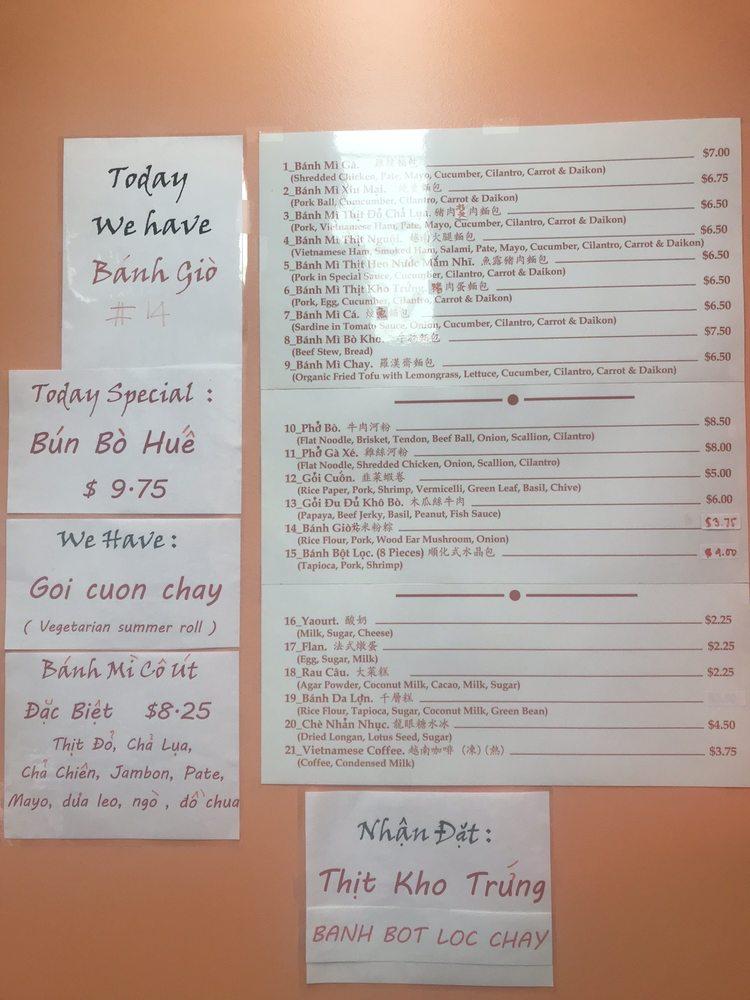 Today
We have
Bánh Giò
# 14
Today Special :
Bún Bò Huế
$ 9.75
We Have :
Goi cuon chay
( Vegetarian summer roll )
Bánh Mì Cô Út
Đặc Biệt $8.25
Thịt Đỏ, Chả Lụa,
Chả Chiên, Jambon, Pate,
Mayo, dưa leo, ngò , đồ chua
1_Bánh Mì Gà. $7.00
(Shredded Chicken, Pate, Mayo, Cucumber, Cilantro, Carrot & Daikon)
2_Bánh Mì Xíu Mại. $6.75
(Pork Ball, Cucumber, Cilantro, Carrot & Daikon)
3_Bánh Mì Thịt Đỏ Chả Lụa. 豬肉扎肉麵包 $6.50
(Pork, Vietnamese Ham, Pate, Mayo, Cucumber, Cilantro, Carrot & Daikon)
4_Bánh Mì Thịt Nguội. 越南火腿麵包 $6.50
(Vietnamese Ham, Smoked Ham, Salami, Pate, Mayo, Cucumber, Cilantro, Carrot & Daikon)
5_Bánh Mì Thịt Heo Nước Mắm Nhĩ. 魚露豬肉麵包 $6.50
(Pork in Special Sauce, Cucumber, Cilantro, Carrot & Daikon)
6_Bánh Mì Thịt Kho Trứng. 豬肉蛋麵包 $6.50
(Pork, Egg, Cucumber, Cilantro, Carrot & Daikon)
7_Bánh Mì Cá. $6.50
(Sardine in Tomato Sauce, Onion, Cucumber, Cilantro, Carrot & Daikon)
8_Bánh Mì Bò Kho. $7.50
(Beef Stew, Bread)
9_Bánh Mì Chay. 羅漢齋麵包 $6.50
(Organic Fried Tofu with Lemongrass, Lettuce, Cucumber, Cilantro, Carrot & Daikon)
10_Phở Bò. 牛肉河粉 $8.50
(Flat Noodle, Brisket, Tendon, Beef Ball, Onion, Scallion, Cilantro)
11_Phở Gà Xé. 雞絲河粉 $8.00
(Flat Noodle, Shredded Chicken, Onion, Scallion, Cilantro)
12_Gỏi Cuốn. 韭菜蝦卷 $5.00
(Rice Paper, Pork, Shrimp, Vermicelli, Green Leaf, Basil, Chive)
13_Gỏi Đu Đủ Khô Bò. 木瓜絲牛肉 $6.00
(Papaya, Beef Jerky, Basil, Peanut, Fish Sauce)
14_Bánh Giò 米粉粽 $3.75
(Rice Flour, Pork, Wood Ear Mushroom, Onion)
15_Bánh Bột Lọc. (8 Pieces) 順化式水晶包 $4.00
(Tapioca, Pork, Shrimp)
16_Yaourt. 酸奶 $2.25
(Milk, Sugar, Cheese)
17_Flan. 法式燉蛋 $2.25
(Egg, Sugar, Milk)
18_Rau Câu. 大菜糕 $2.25
(Agar Powder, Coconut Milk, Cacao, Milk, Sugar)
19_Bánh Da Lợn. 千層糕
(Rice Flour, Tapioca, Sugar, Coconut Milk, Green Bean)
20_Chè Nhản Nhục. 龍眼糖水冰 $4.50
(Dried Longan, Lotus Seed, Sugar)
21_Vietnamese Coffee. 越南咖啡 (凍) (熱) $3.75
(Coffee, Condensed Milk)
Nhận Đặt :
Thịt Kho Trứng
BANH BOT LOC CHAY